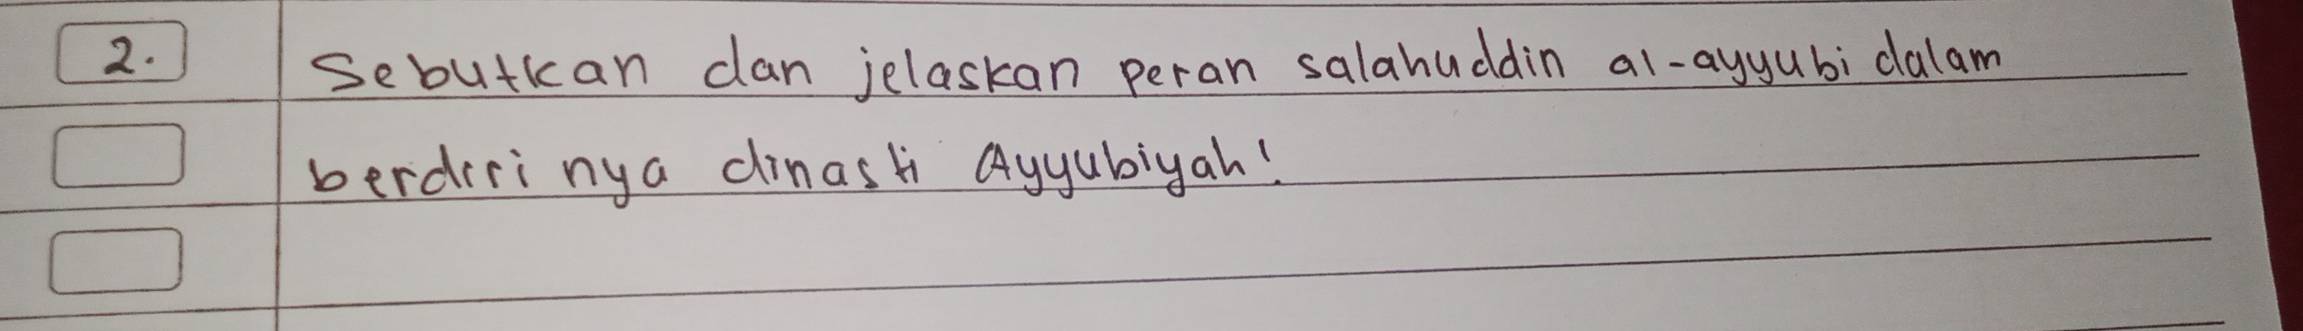 2. Sebutkan dan jelaskan peran salahuddin al-ayyubi dalam
berdiri nya dinasti Ayyubiyah!